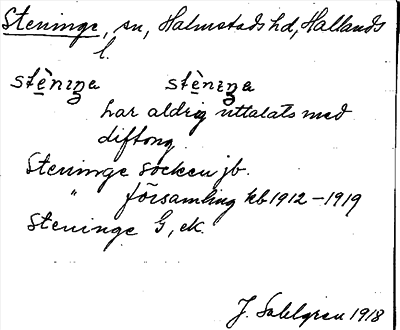 Steninge, sn, Halmstads hd, Hallands
l.
stèniŋa stèniŋa
har aldrig uttalats med
diftong
Steninge socken jb.
" församling kb 1912-1919
Steninge G, ek.
J. Sahlgren 1918